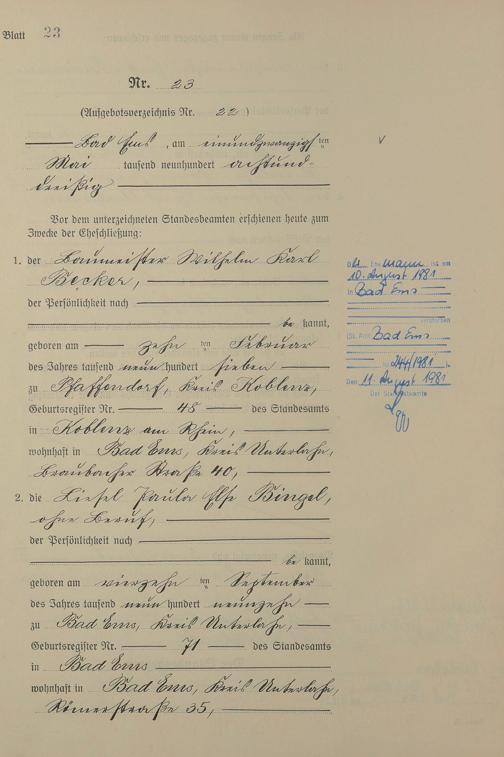 Blatt 23
Nr. 23
(Aufgebotsverzeichnis Nr. 22)
Bad Ems, am einundzwanzigsten
Mai tausend neunhundert achtund-
dreißig
Vor dem unterzeichneten Standesbeamten erschienen heute zum
Zwecke der Eheschließung:
1. der Baumeister Wilhelm Karl
Becker,
der Persönlichkeit nach
be kannt,
geboren am zehn ten Februar
des Jahres tausend neun hundert sieben
zu Pfaffendorf, Kreis Koblenz,
Geburtsregister Nr. 48 des Standesamts
in Koblenz am Rhein,
wohnhaft in Bad Ems, Kreis Unterlahn,
Braubacher Straße 40,
2. die Liesel Paula Else Bingel,
ohne Beruf,
der Persönlichkeit nach
be kannt,
geboren am vierzehn ten September
des Jahres tausend neun hundert neunzehn
zu Bad Ems, Kreis Unterlahn,
Geburtsregister Nr. 71 des Standesamts
in Bad Ems
wohnhaft in Bad Ems, Kreis Unterlahn,
Römerstraße 35,
D er Ehemann ist am
10. August 1981
in Bad Ems
verstorben
(St. Amt Bad Ems
Nr. 244/1981).
Den 11. August 1981
Der Standesbeamte